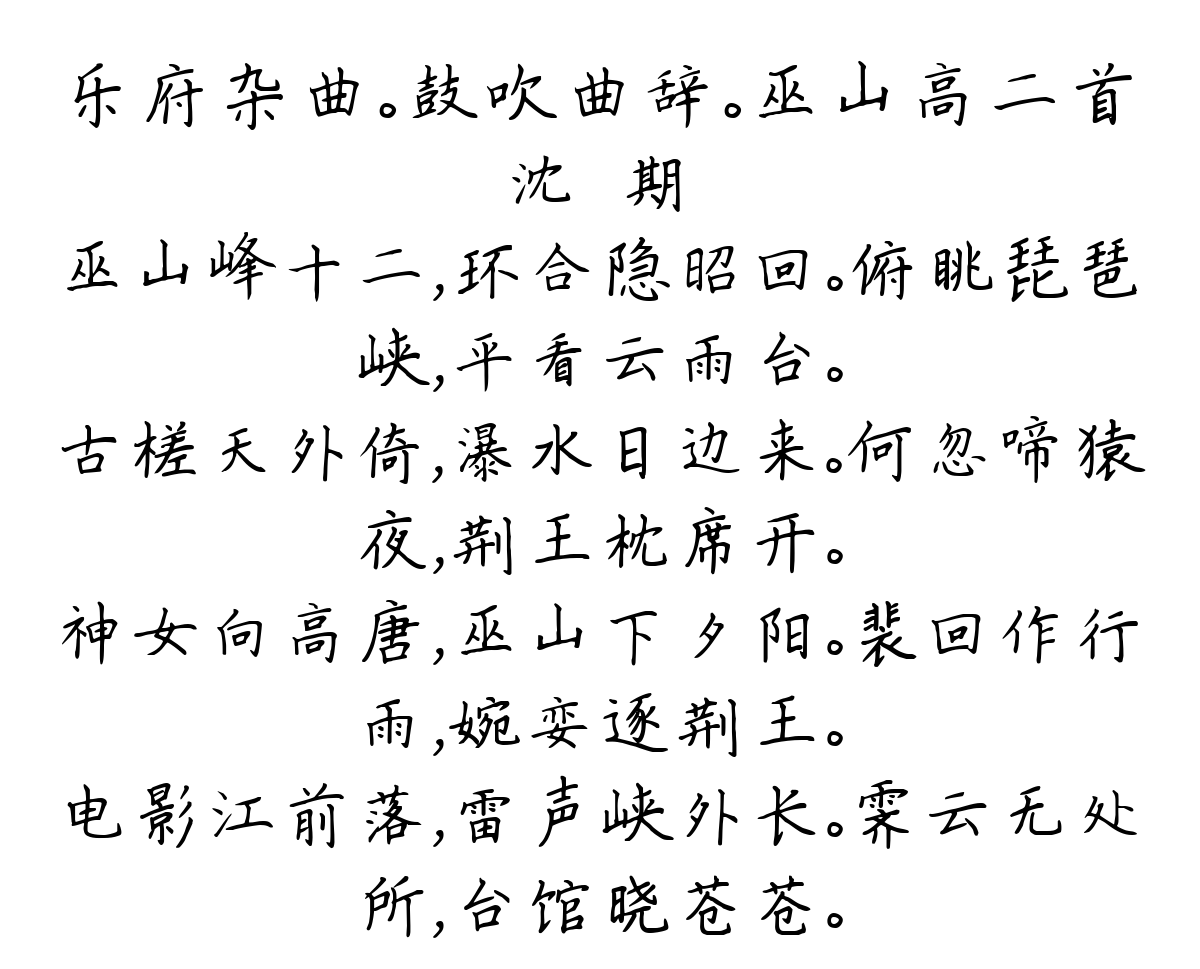 乐府杂曲。鼓吹曲辞。巫山高二首
沈 期
巫山峰十二,环合隐昭回。俯眺琵琶
峡,平看云雨台。
古槎天外倚,瀑水日边来。何忽啼猿
夜,荆王枕席开。
神女向高唐,巫山下夕阳。裴回作行
雨,婉娈逐荆王。
电影江前落,雷声峡外长。霁云无处
所,台馆晓苍苍。